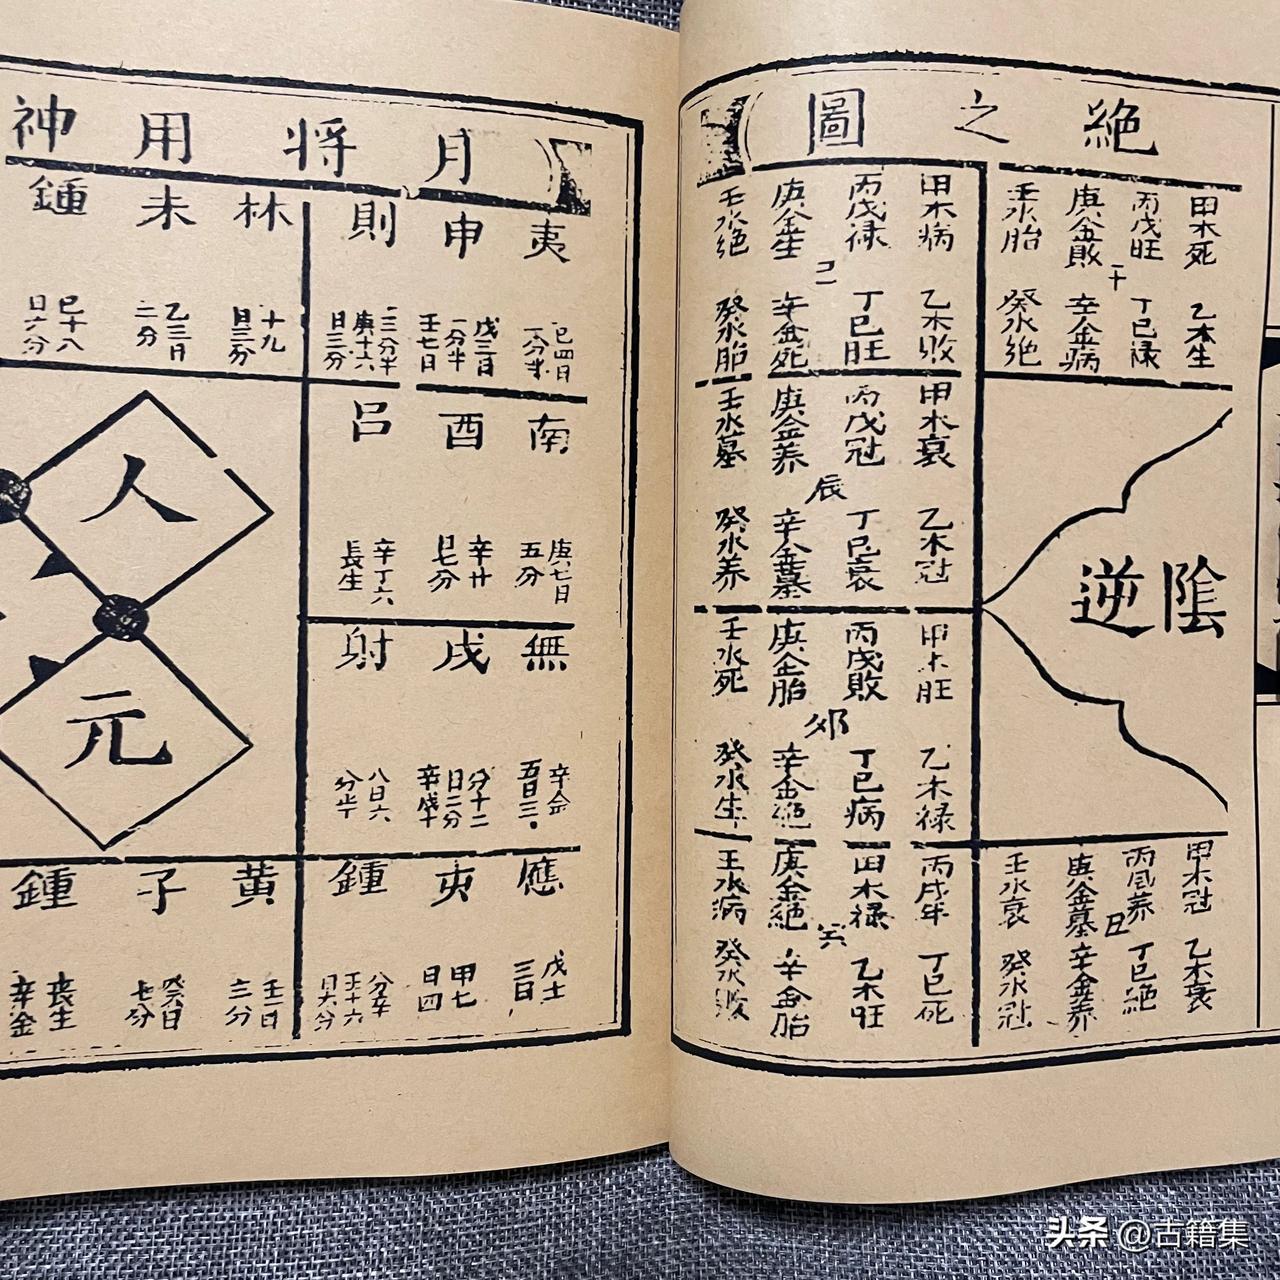 絕之圖
甲木死
丙戊旺
庚金敗
壬水胎
午
乙木生
丁巳禄
辛金病
癸水絕
陰逆
甲木冠
丙戊养
庚金墓
壬水衰
丑
乙木衰
丁巳絕
辛金养
癸水冠
甲木病
丙戊禄
庚金生
壬水絕
巳
乙木敗
丁巳旺
辛金死
癸水胎
甲木衰
丙戊冠
庚金养
壬水墓
辰
乙木冠
丁巳衰
辛金墓
癸水养
甲木旺
丙戊敗
庚金胎
壬水死
卯
乙木禄
丁巳病
辛金絕
癸水生
丙戊年
田木禄
庚金絕
壬水病
丁巳死
乙木旺
辛金胎
癸水敗
月将用神
夷
申
則
巳四日
一分半
戊三日
一分半
壬七日
二三分半
庚十六
日三分
林
未
鍾
十九
日三分
乙三日
二分
巳十八
日六分
南
酉
呂
庚七日
五分
辛廿
日七分
辛丁六
長生
無
戌
射
五日三
分十二
日二分
辛戊十
八日六
分半
應
夷
鍾
戊士
三日
甲七
日四
分辛
壬十六
日六分
黄
子
鍾
壬一日
三分
癸六日
七分
長生
辛金
人
元
头条 @古籍集